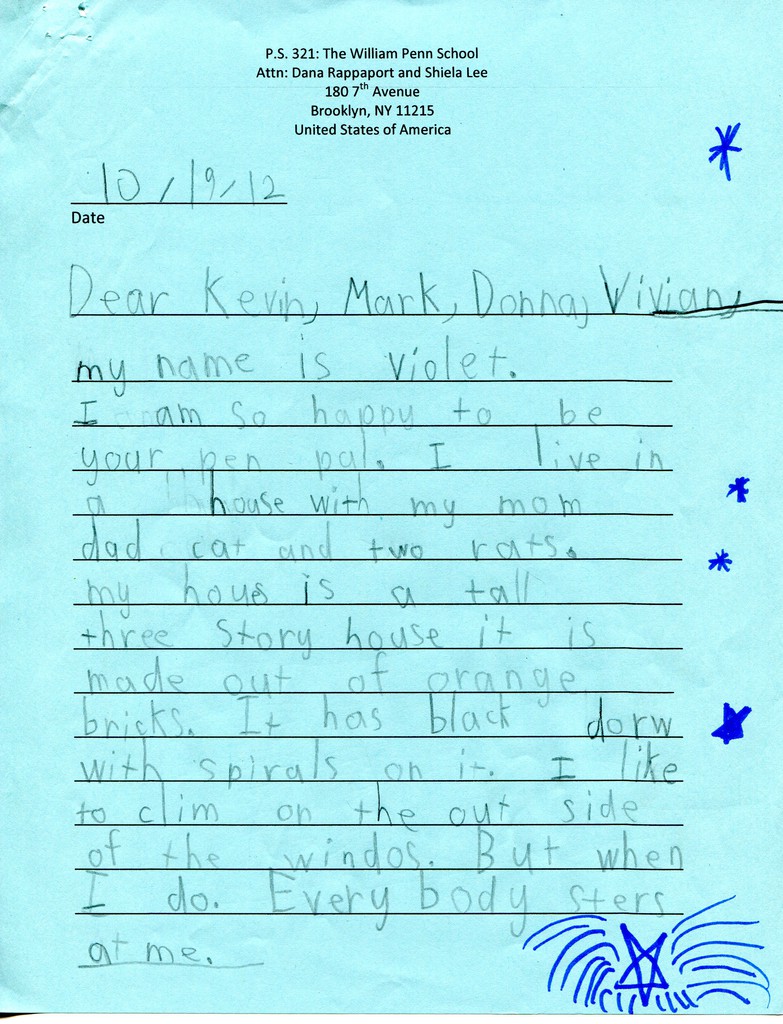 P.S. 321: The William Penn School
Attn: Dana Rappaport and Shiela Lee
180 7th Avenue
Brooklyn, NY 11215
United States of America
10/19/12
Date
Dear Kevin, Mark, Donna, Vivian,
my name is violet.
I am so happy to be
your pen pal. I live in
a house with my mom
dad cat and two rats.
my hous is a tall
three story house it is
made out of orange
bricks. It has black dorw
with spirals on it. I like
to clim on the out side
of the windos. But when
I do. Every body sters
at me.